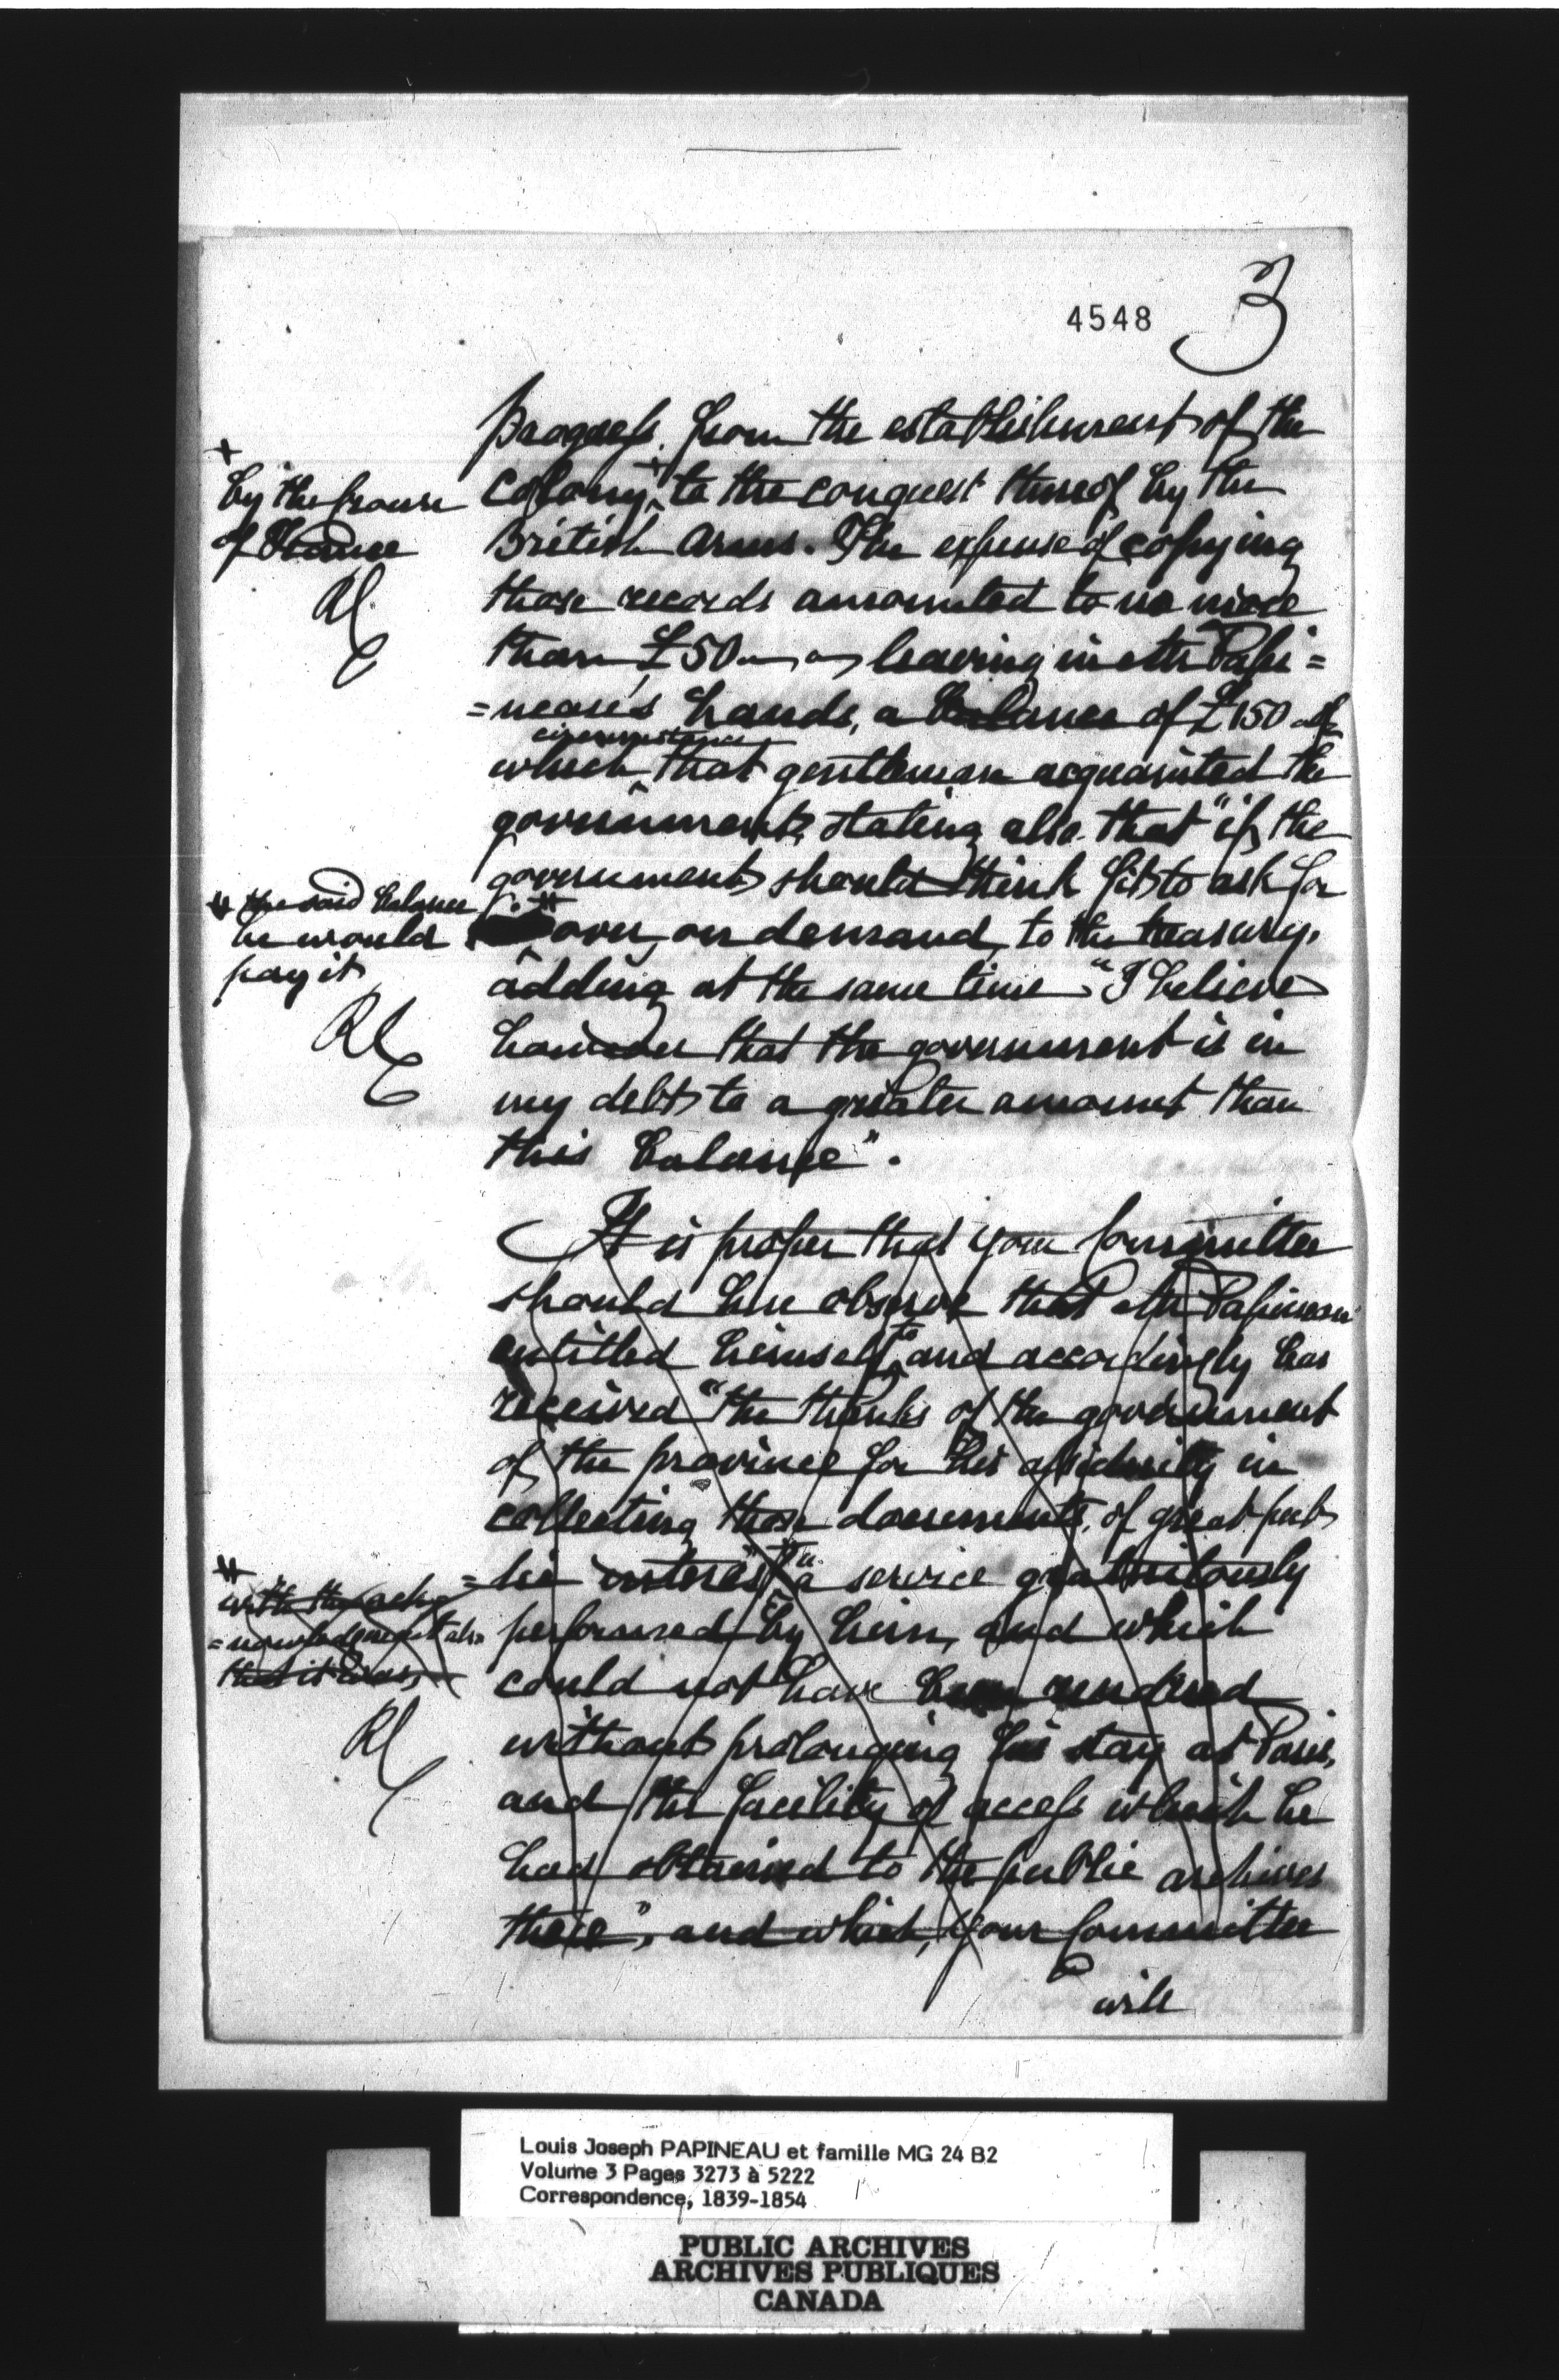 4548
3
progress from the establishment of the
colony + to the conquest thereof by the
British Arms. The expense of copying
those records amounted to no more
than £50 leaving in Mr Papi=
=neau's hands, a balance of £150 of
circumstance
which that gentleman acquainted the
government, stating also that "if the
government should think fit to ask for
over, on demand, to the treasury,
adding at the same time "I believe
however that the government is in
my debt to a greater amount than
this balance".
It is proper that your Committee
should here observe that Mr Papineau
entitled himself to and accordingly has
received "the thanks of the government
of the province for his assiduity in
collecting those documents, of great pub
=lic interest" "a service gratuitously
performed by him, and which
could not have been rendered
without prolonging his stay at Paris,
and the facility of access which he
had obtained to the public archives
there", and which, your Committee
will
+
by the
of France
# the said balance
he would
pay it
#
with the ack
=nowledgement also
that it was
Louis Joseph PAPINEAU et famille MG 24 B2
Volume 3 Pages 3273 à 5222
Correspondence, 1839-1854
PUBLIC ARCHIVES
ARCHIVES PUBLIQUES
CANADA